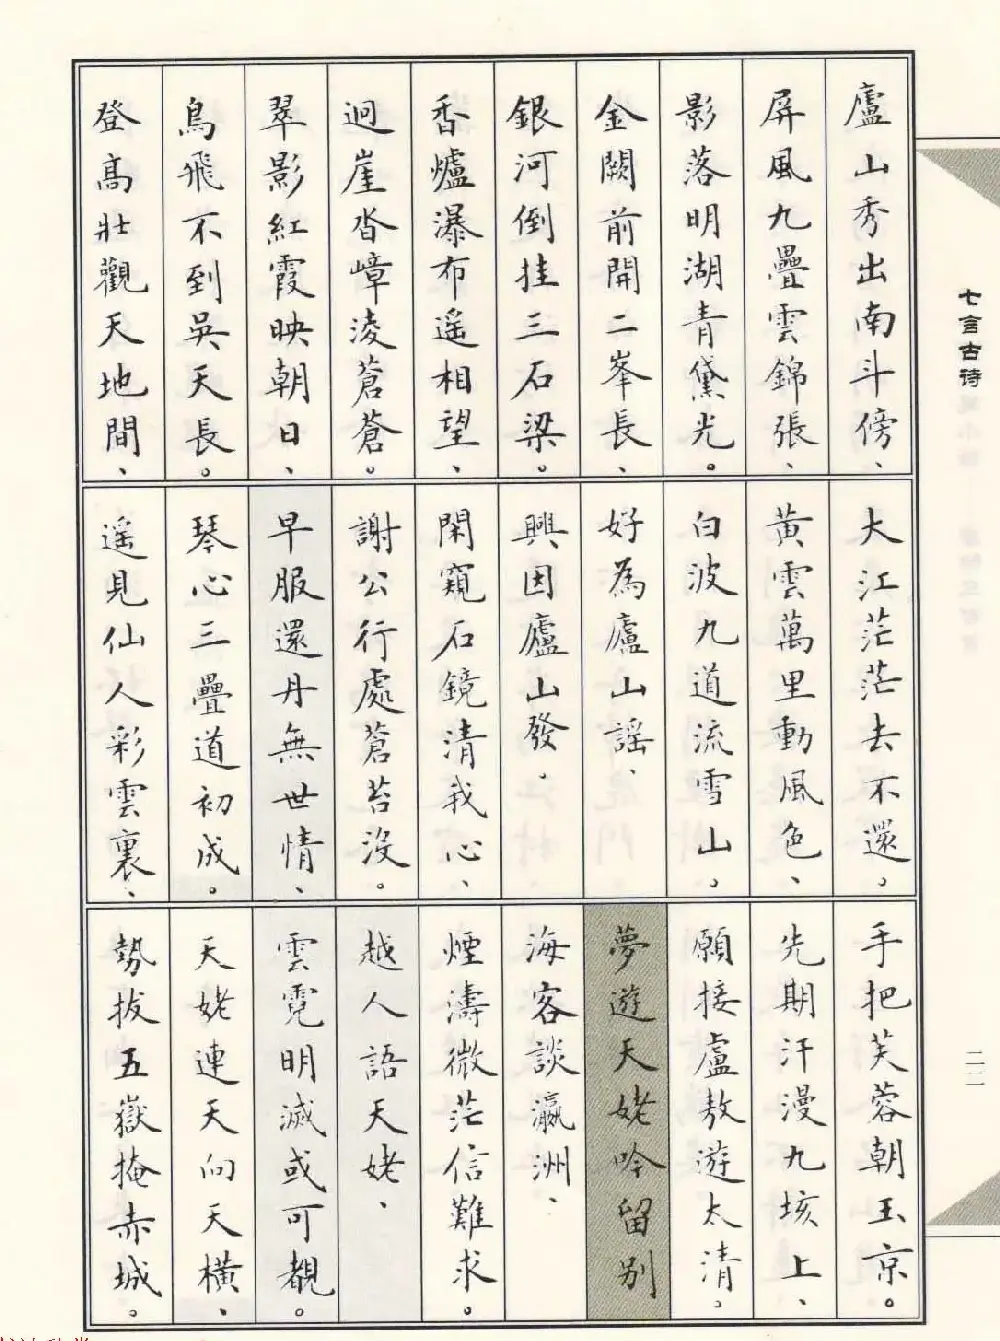 廬山秀出南斗傍、
屏風九疊雲錦張、
影落明湖青黛光。
金闕前開二峯長、
銀河倒挂三石梁。
香爐瀑布遥相望、
迥崖沓嶂淩蒼蒼。
翠影紅霞映朝日、
鳥飛不到吳天長。
登高壯觀天地間、
大江茫茫去不還。
黃雲萬里動風色、
白波九道流雪山。
好為廬山謡、
興因廬山發。
閑窺石鏡清我心、
謝公行處蒼苔沒。
早服還丹無世情、
琴心三疊道初成。
遥見仙人彩雲裏、
手把芙蓉朝玉京。
先期汗漫九垓上、
願接盧敖遊太清。
夢遊天姥吟留別
海客談瀛洲、
煙濤微茫信難求。
越人語天姥、
雲霓明滅或可覩。
天姥連天向天橫、
勢拔五嶽掩赤城。
七言古诗
二一